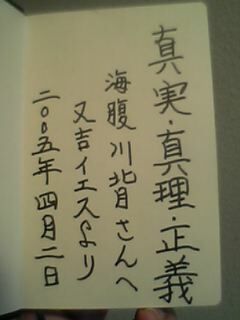 真実・真理・正義
海腹川背さんへ
又吉イエスより
二〇〇五年四月二日